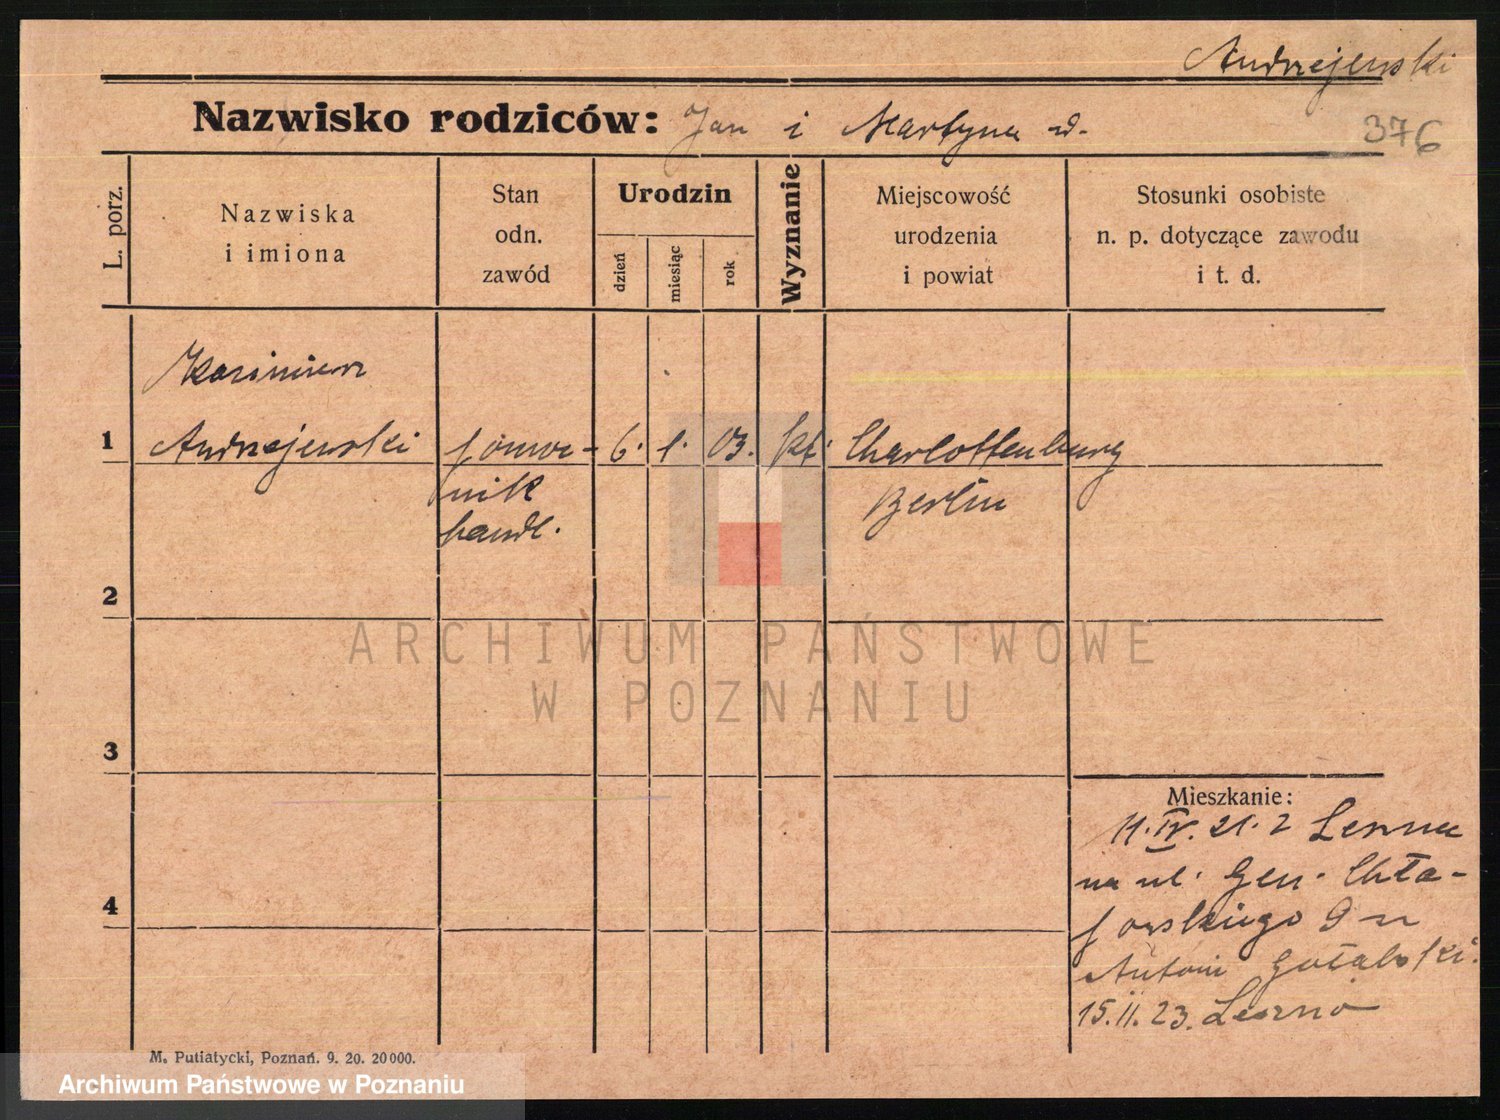 Andrzejewski
Nazwisko rodziców: Jan i Martyna
376
L. porz.
Nazwiska
i imiona
Stan
odn.
zawód
Urodzin
dzień
miesiąc
rok
Wyznanie
Miejscowość
urodzenia
i powiat
Stosunki osobiste
n. p. dotyczące zawodu
i t. d.
Kazimierz
1 Andrzejewski pomoc- 6. 1. 03. kt. Charlottenburg
nik Berlin
handl.
2
3
4
ARCHIWUM PAŃSTWOWE
W POZNANIU
Mieszkanie:
11. IV. 21. z Leszna
na ul. Gen. Chła-
powskiego 9 u
Antoni
15. II. 23. Leszno
M. Putiatycki, Poznań. 9. 20. 20000.
Archiwum Państwowe w Poznaniu